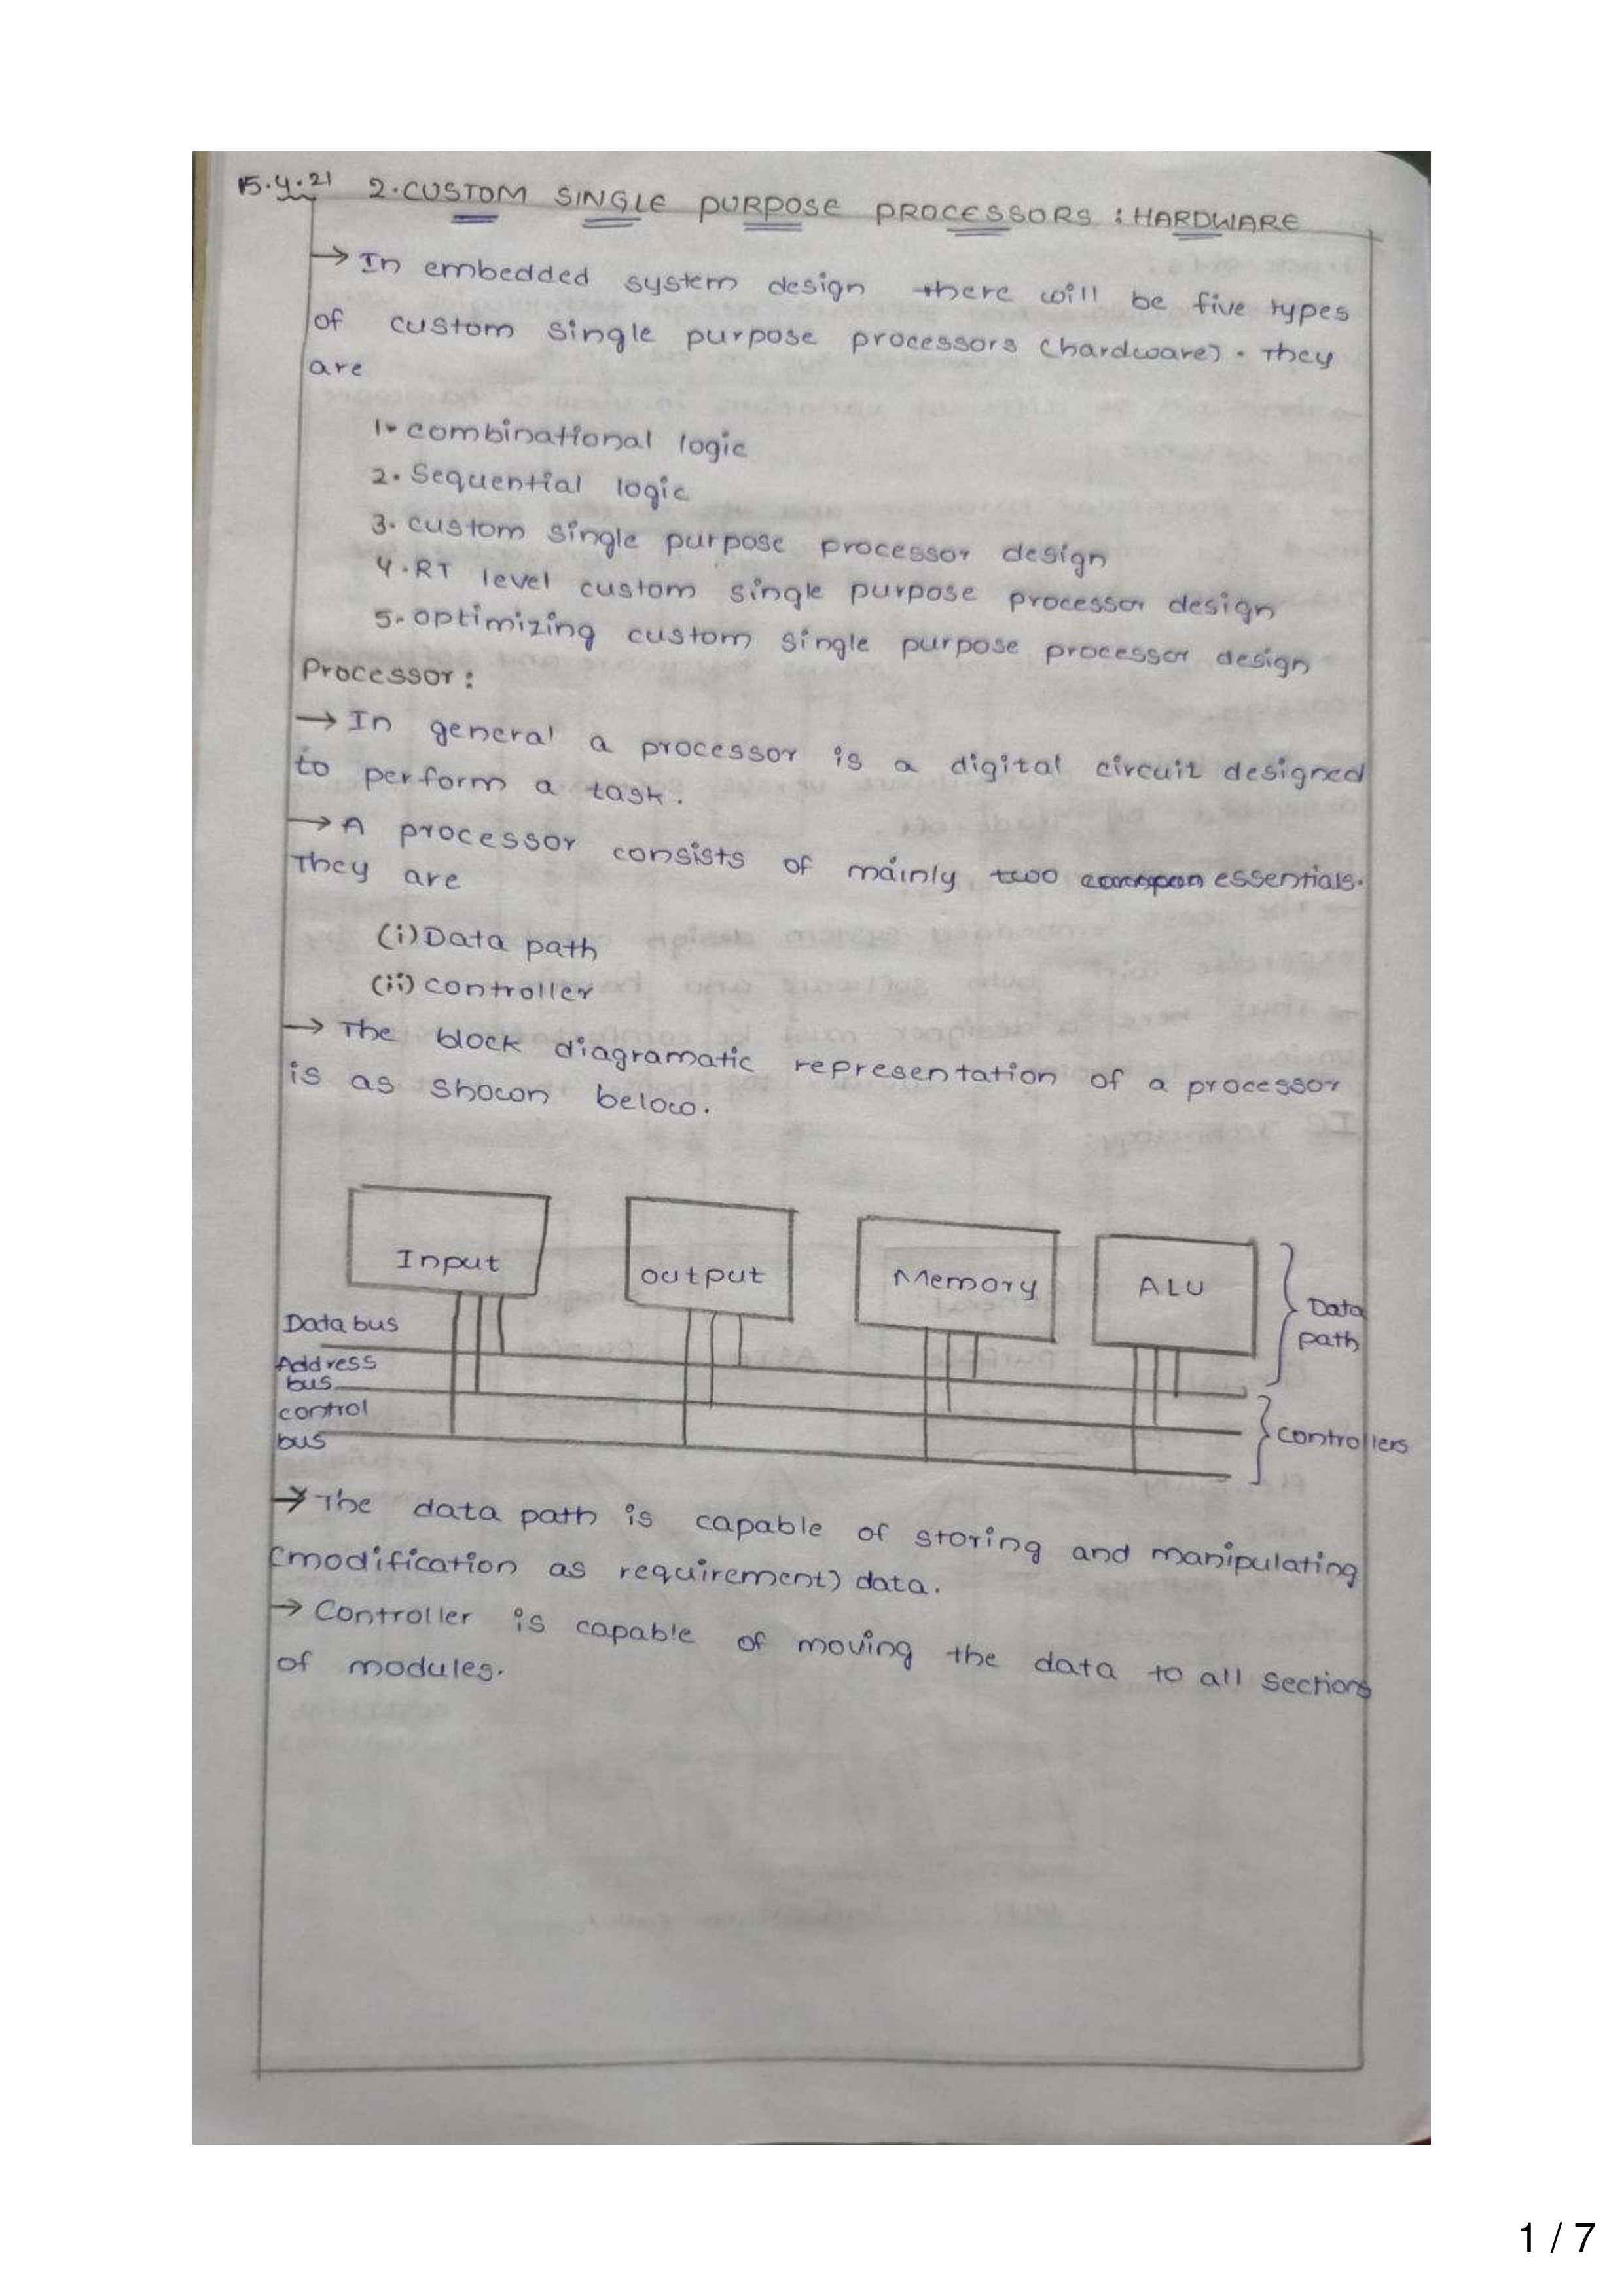 15.4.21 2.CUSTOM SINGLE PURPOSE PROCESSORS : HARDWARE
→ In embedded system design there will be five types
of custom single purpose processors (hardware). They
are
1. combinational logic
2. Sequential logic
3. custom single purpose processor design
4. RT level custom single purpose processor design
5. optimizing custom single purpose processor design
Processor :
→ In general a processor is a digital circuit designed
to perform a task.
→ A processor consists of mainly two essentials.
They are
(i) Data path
(ii) controller
→ The block diagramatic representation of a processor
is as shown below.
Input
output
Memory
ALU
Data
path
Data bus
Address
bus
control
bus
controllers
→ The data path is capable of storing and manipulating
(modification as requirement) data.
→ Controller is capable of moving the data to all sections
of modules.
1 / 7